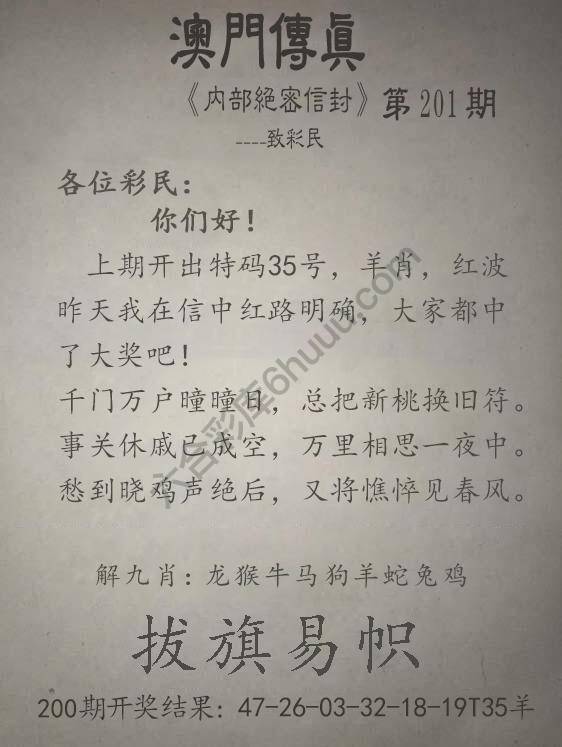 澳門傳真
《内部絕密信封》第201期
----致彩民
各位彩民：
你们好！
上期开出特码35号，羊肖，红波
昨天我在信中红路明确，大家都中
了大奖吧！
千门万户曈曈日，总把新桃换旧符。
事关休戚已成空，万里相思一夜中。
愁到晓鸡声绝后，又将憔悴见春风。
解九肖：龙猴牛马狗羊蛇兔鸡
拔旗易帜
200期开奖结果：47-26-03-32-18-19T35羊
六合彩库6huuu.com